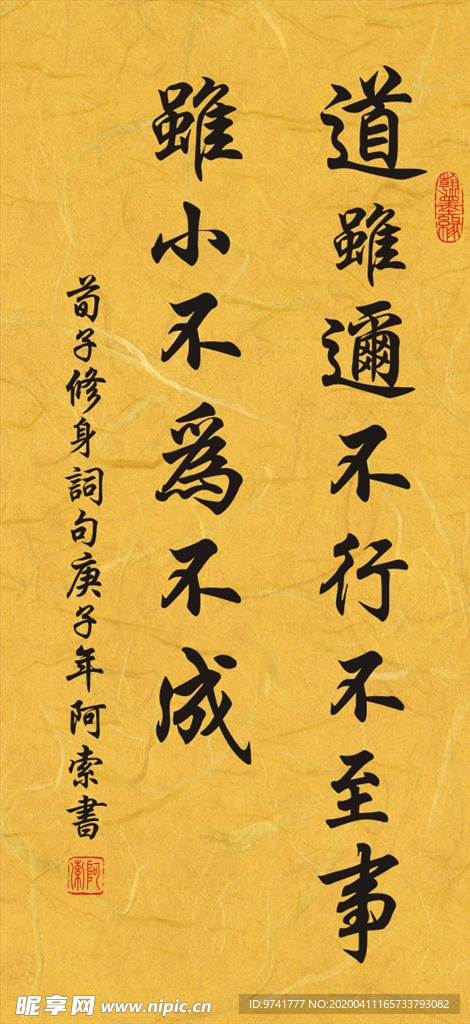 道雖邇不行不至事
雖小不為不成
荀子修身詞句庚子年阿索書
翰墨緣
阿索
昵享网 www.nipic.cn
ID:9741777 NO:20200411165733793082